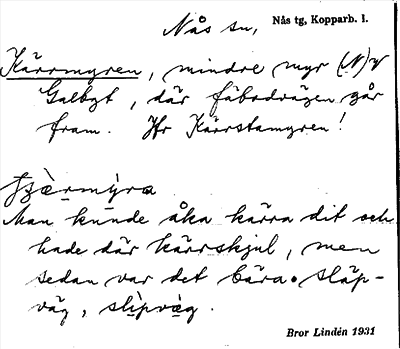 Nås sn, Nås tg, Kopparb. l.
Kärrmyren, mindre myr (N) V
Galbyt, där fäbodvägen går
fram. Jfr Kärrstamyren!
Man kunde åka kärra dit och
hade där kärrskjul, men
sedan var det bara släp-
väg, slìpvæg.
Bror Lindén 1931